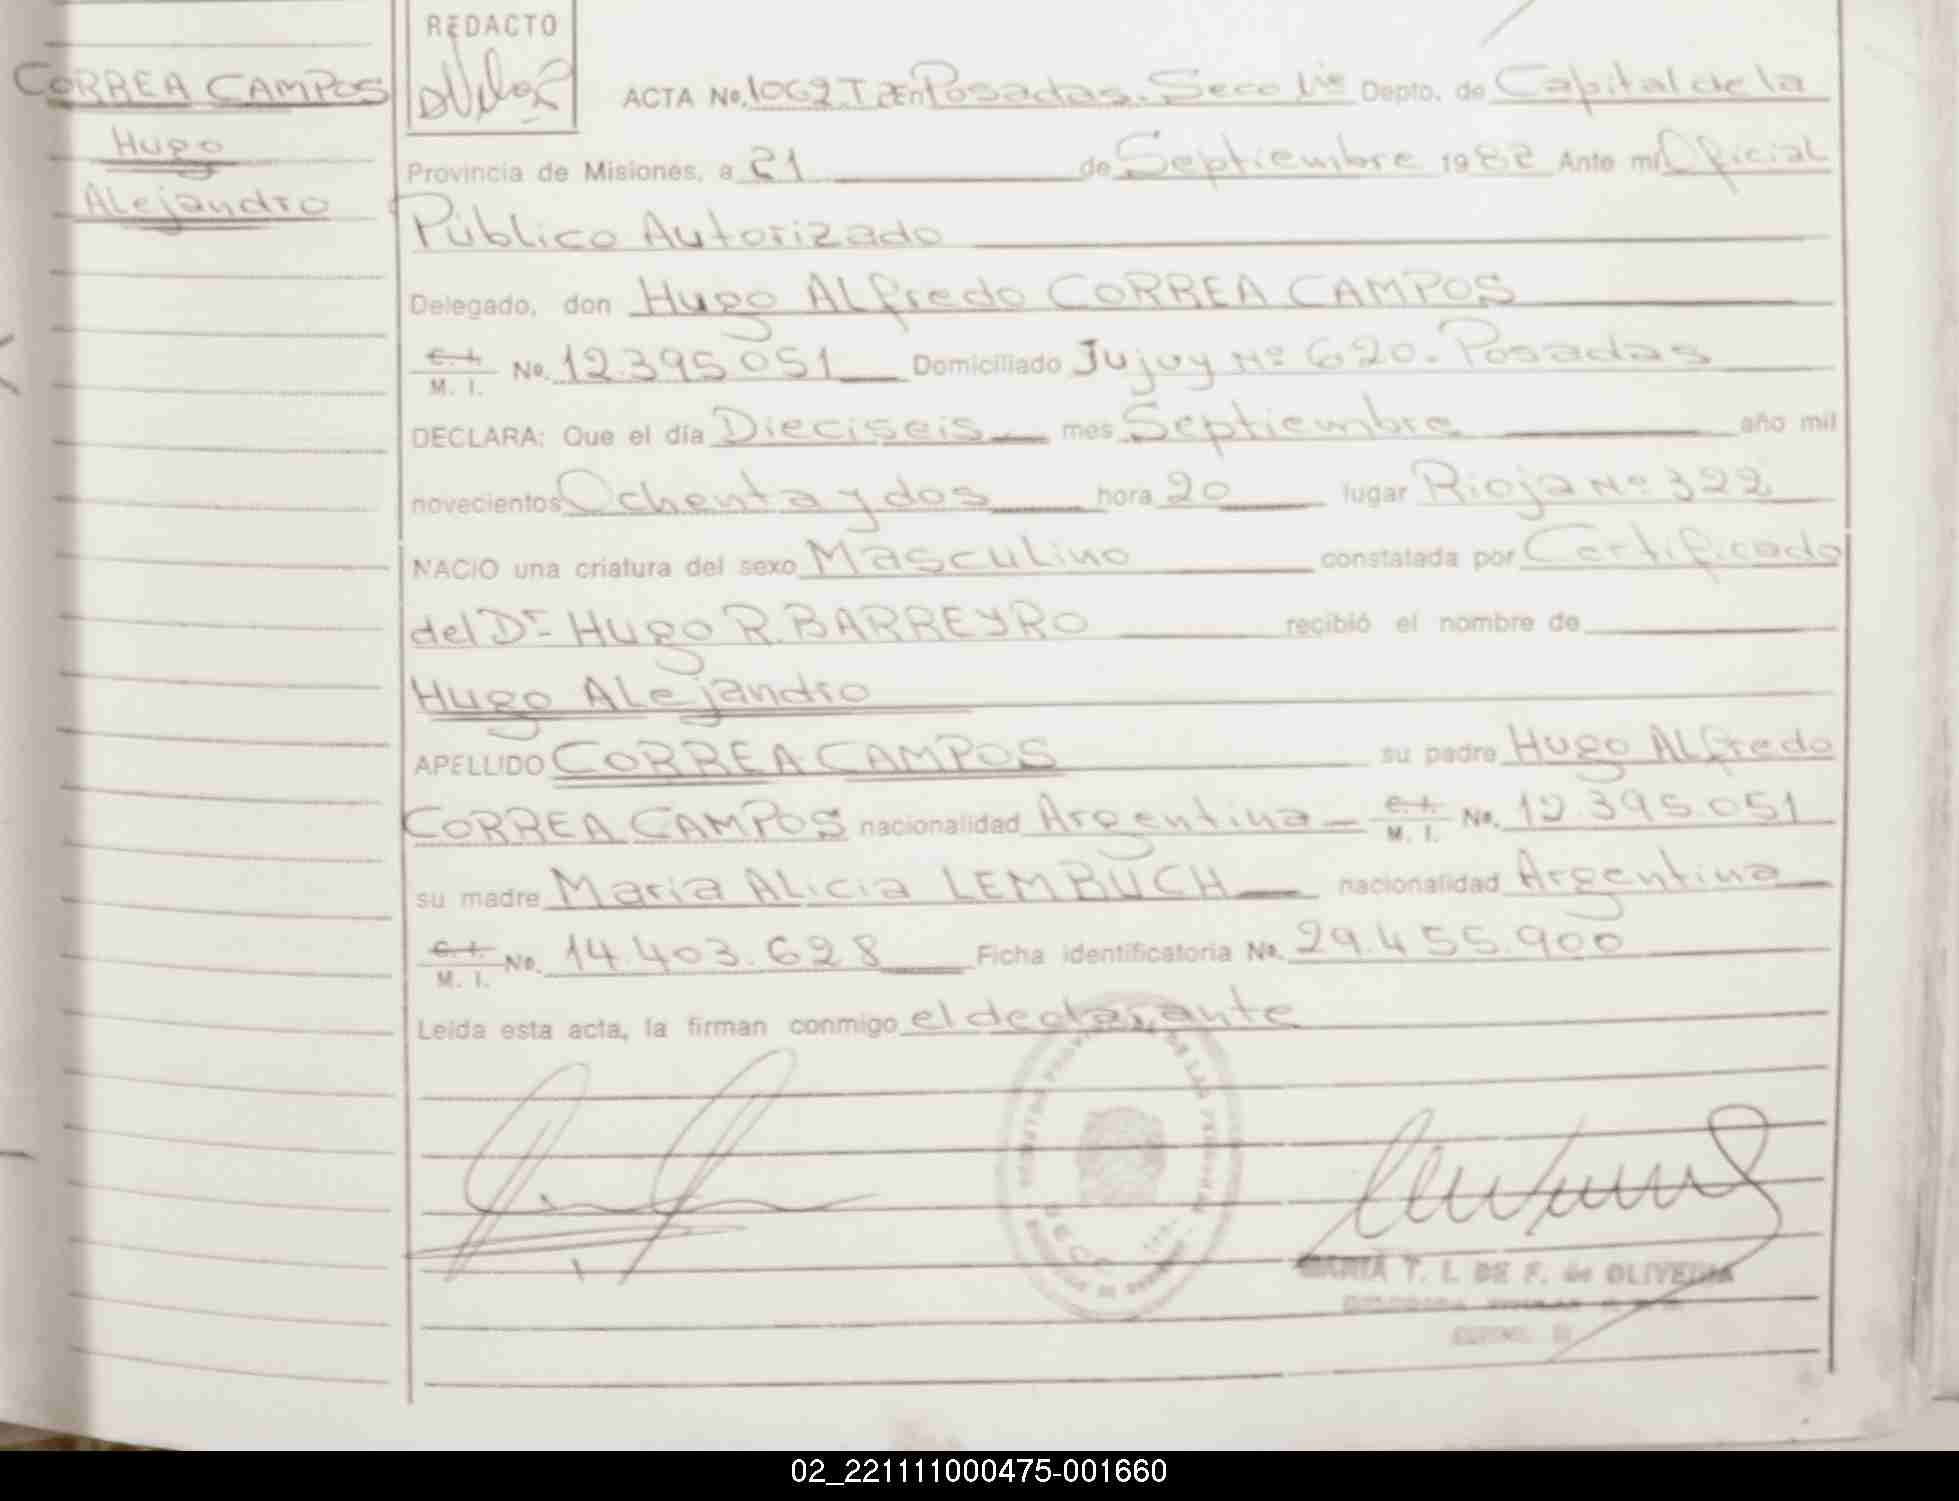 REDACTO
CORREA CAMPOS
Hugo
Alejandro
ACTA No. 1062 T En Posadas. Secc Depto. de Capital de la
Provincia de Misiones, a 21 de Septiembre 1982 Ante mi Oficial
Público Autorizado
Delegado, don Hugo ALfredo CORREA CAMPOS
C. I. M. I. No. 12.395.051 Domiciliado Jujuy Nº 620. Posadas
DECLARA: Que el día Dieciseis mes Septiembre año mil
novecientos Ochenta y dos hora 20 lugar Rioja Nº 322
NACIO una criatura del sexo Masculino constatada por Certificado
del Dr. Hugo R. BARREYRO recibió el nombre de
Hugo ALejandro
APELLIDO CORREA CAMPOS su padre Hugo ALfredo
CORREA CAMPOS nacionalidad Argentina C. I. M. I. No. 12.395.051
su madre María ALicia LEMBUCH nacionalidad Argentina
C. I. M. I. No. 14.403.628 Ficha identificatoria No. 29.455.900
Leída esta acta, la firman conmigo el declarante
MARIA T. L. DE F. de OLIVEIRA
02_221111000475-001660